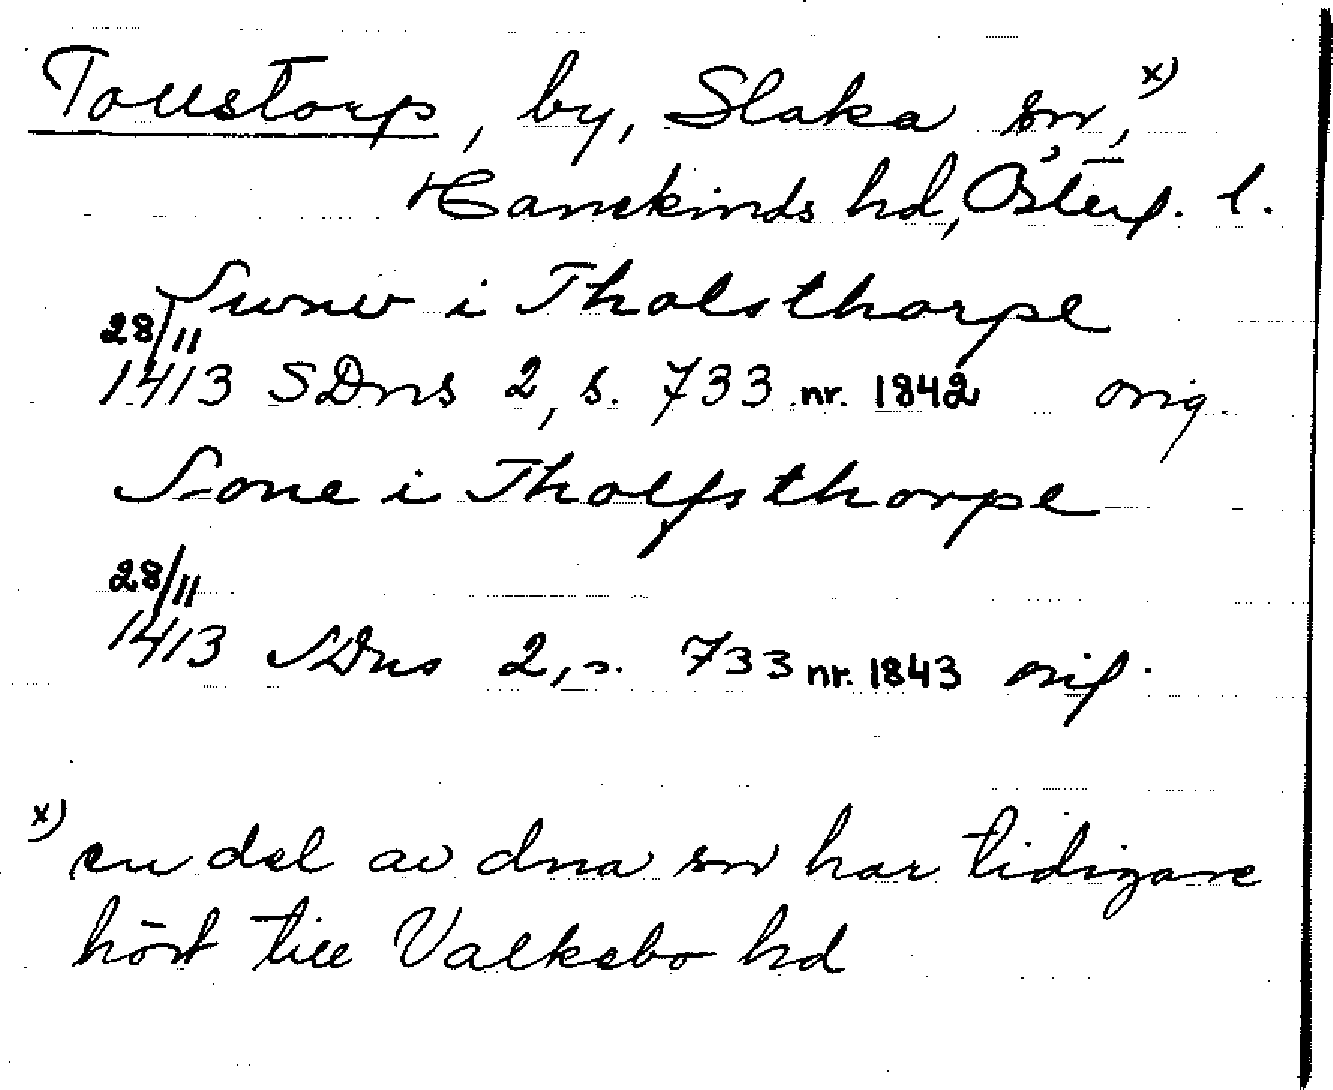 Tollstorp, by, Slaka sn, x)
Hanekinds hd, Österg. l.
Swnw i Tholsthorpe
28/11
1413 SDns 2, s. 733 nr. 1842 orig.
Sone i Tholfsthorpe
28/11
1413 SDns 2, s. 733 nr. 1843 orig.
x) en del av dna sn har tidigare
hört till Valkebo hd